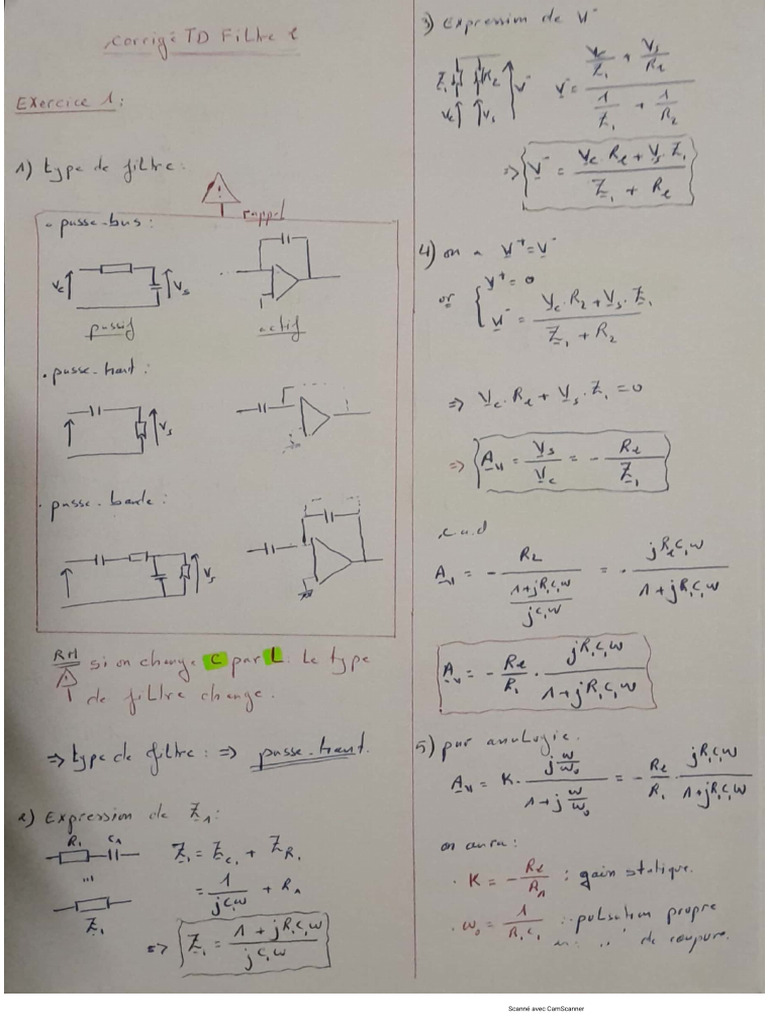 Corrigé TD Filtre 2
Exercice 1:
1) type de filtre:
rappel
• passe-bas:
Ve
Vs
passif
actif
• passe-haut:
Vs
• passe-bande:
Vs
RM si on change C par L. Le type
de filtre change.
⇒ type de filtre: ⇒ passe-haut.
2) Expression de Z1:
R1 C1
Z1
Z1 = ZC1 + ZR1
= 1/(jC1ω) + R1
⇒ Z1 = (1 + jR1C1ω)/(jC1ω)
3) Expression de V⁻
Z1 R2 V⁻
Ve Vs
V⁻ = (Ve/Z1 + Vs/R2)/(1/Z1 + 1/R2)
⇒ V⁻ = (Ve.R2 + Vs.Z1)/(Z1 + R2)
4) on a V⁺ = V⁻
or { V⁺ = 0
V⁻ = (Ve.R2 + Vs.Z1)/(Z1 + R2)
⇒ Ve.R2 + Vs.Z1 = 0
⇒ Av = Vs/Ve = - R2/Z1
c.a.d
Av = - R2/((1+jR1C1ω)/(jC1ω)) = - jR2C1ω/(1+jR1C1ω)
Av = - R2/R1 . jR1C1ω/(1+jR1C1ω)
5) par analogie.
Av = K. (j ω/ω0)/(1+j ω/ω0) = - R2/R1 . jR1C1ω/(1+jR1C1ω)
on aura:
• K = - R2/R1 : gain statique.
• ω0 = 1/(R1C1) : pulsation propre
de coupure.
Scanné avec CamScanner